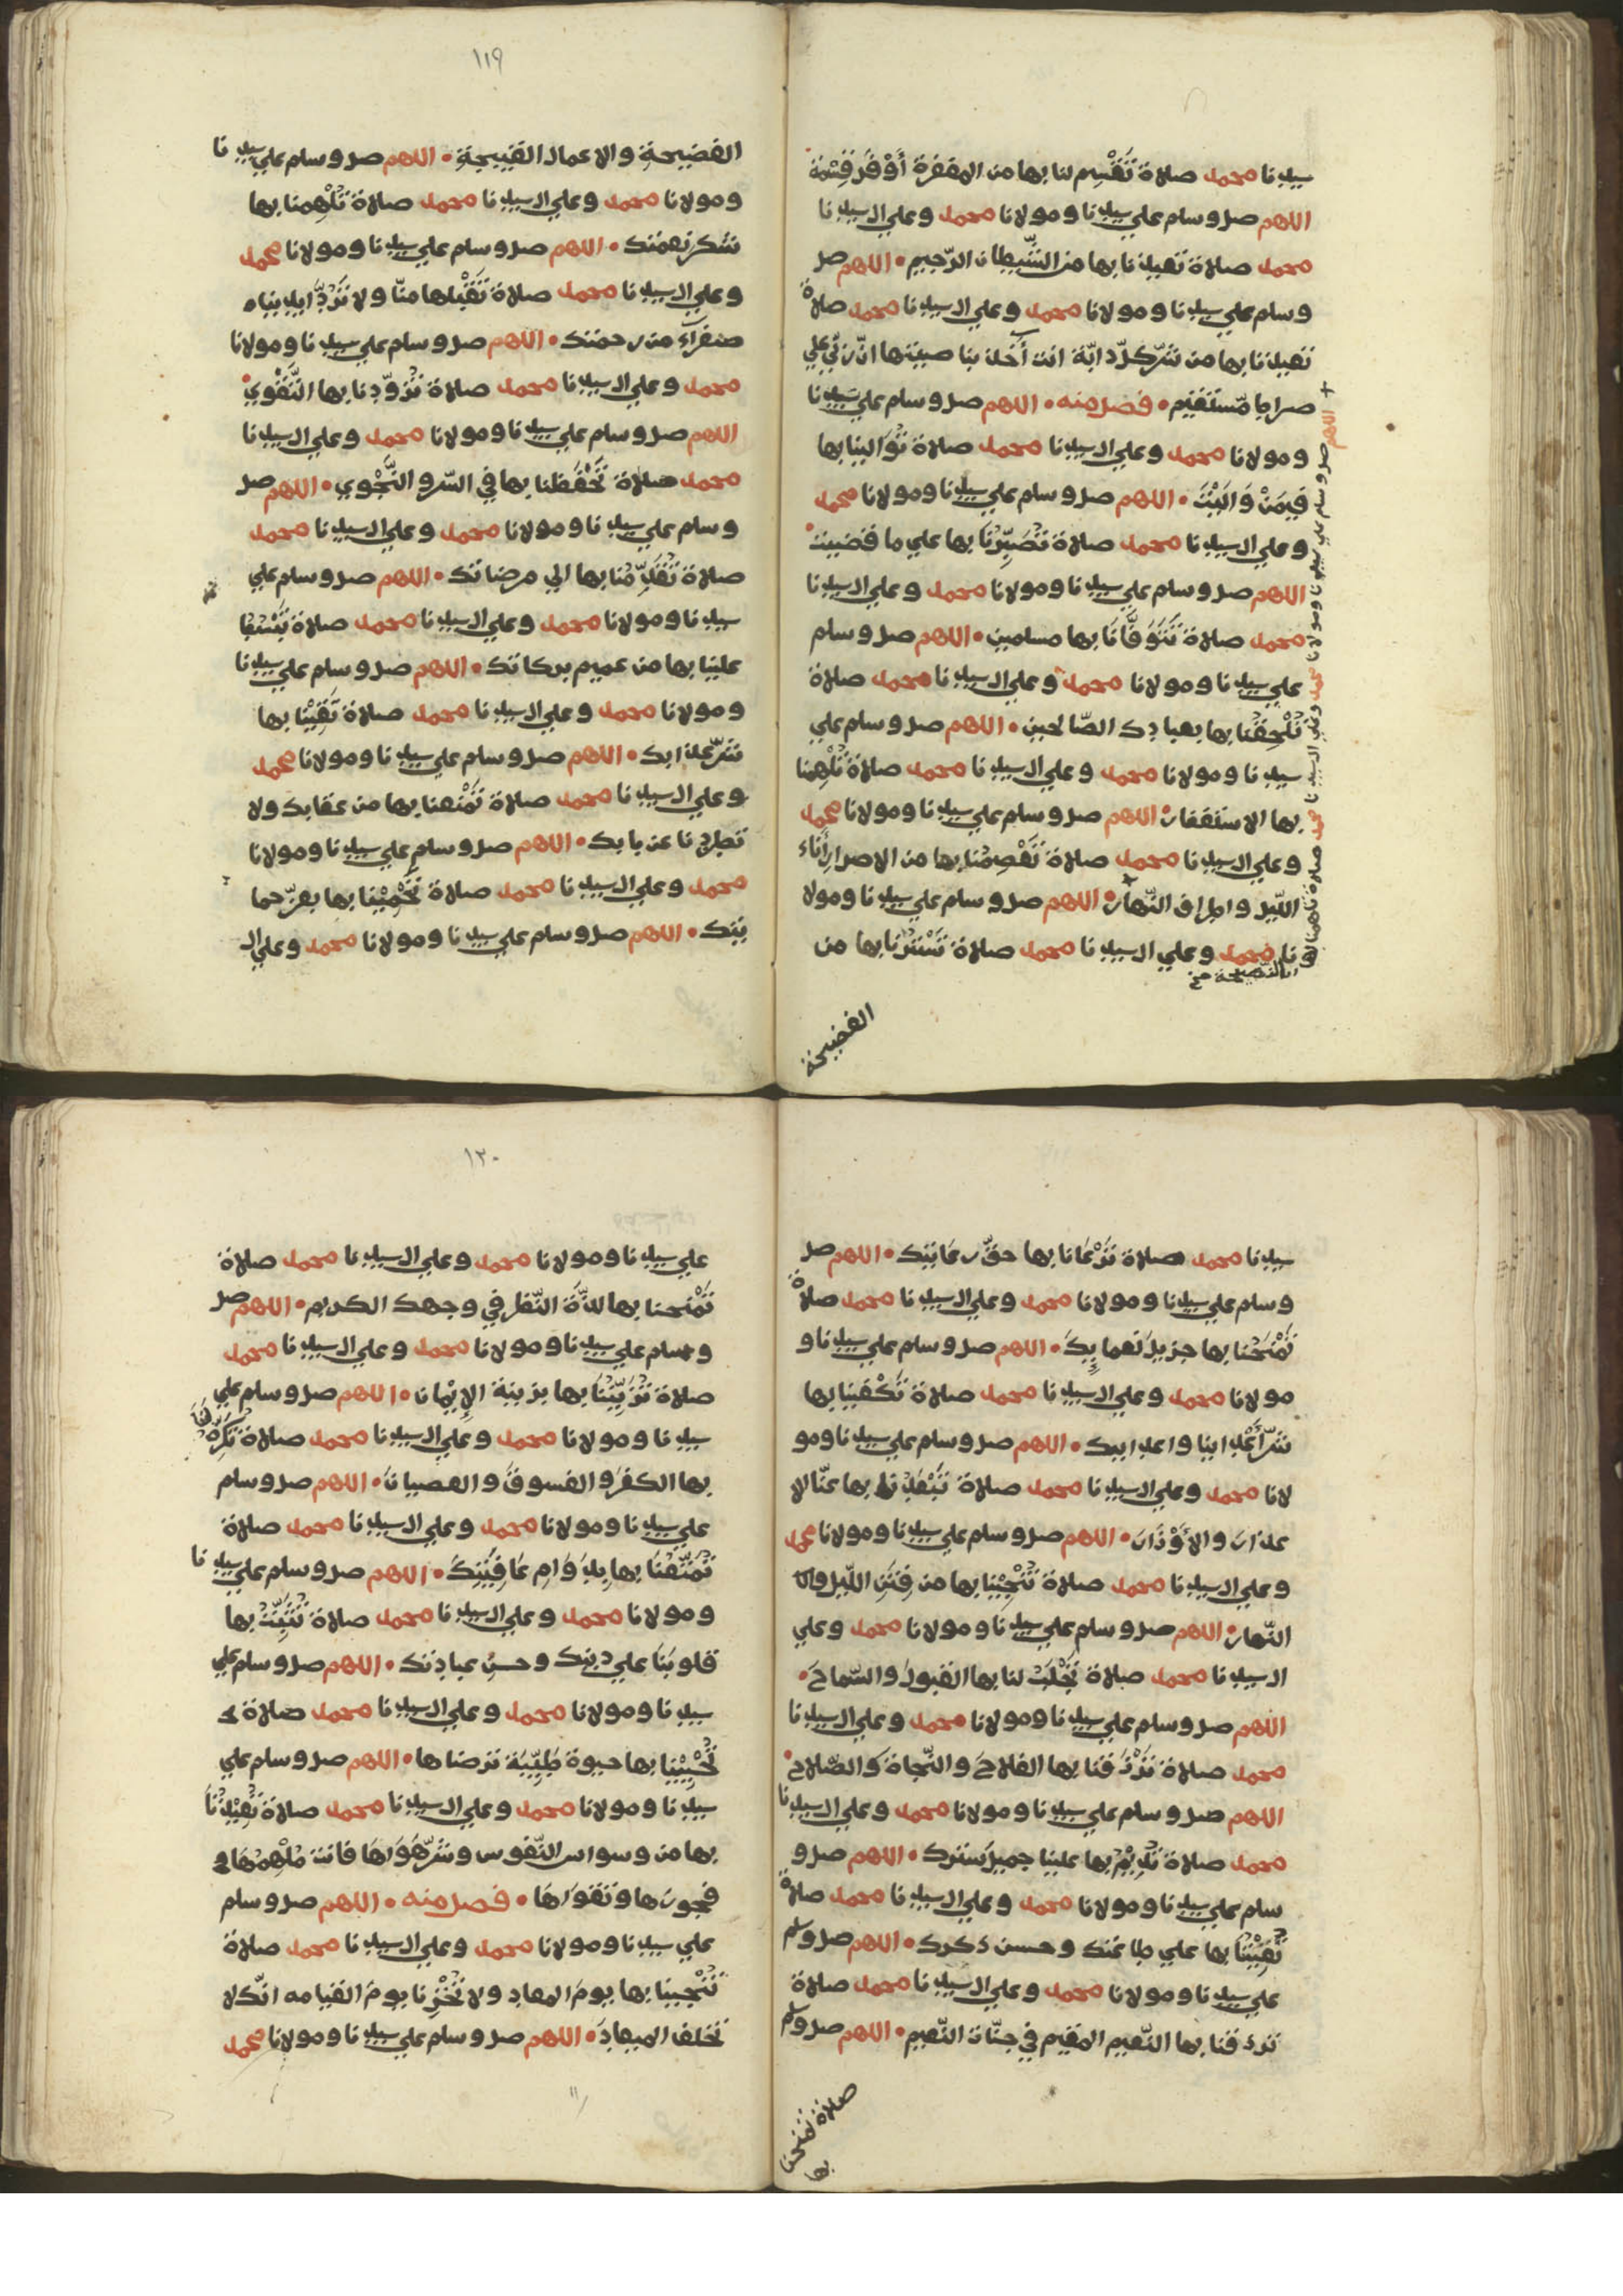 سيدنا محمد صلاة تَقْسِم لنا بها من المغفرة أَوْفَرَ قِسْمَة
اللهم صل وسلم علي سيدنا ومولانا محمد وعلي ال سيدنا
محمد صلاة تعيذنا بها من الشّيطان الرّجيم • اللهم صل
وسلم علي سيدنا ومولانا محمد وعلي ال سيدنا محمد صلاة
تعيذنا بها من شرّ كلّ دابّة انت آخذ بناصيتها انّ ربّي علي
صراط مّستقيم • فصل منه • اللهم صل وسلم علي سيدنا
ومولانا محمد وعلي ال سيدنا محمد صلاة تُوَالينا بها
فِيمَنْ وَالَيْتَ • اللهم صل وسلم علي سيدنا ومولانا محمد
وعلي ال سيدنا محمد صلاة تُصَبِّرُنَا بها علي ما قضيت •
اللهم صل وسلم علي سيدنا ومولانا محمد وعلي ال سيدنا
محمد صلاة تَتَوَفَّانَا بها مسلمين • اللهم صل وسلم
علي سيدنا ومولانا محمد وعلي ال سيدنا محمد صلاة
تُلْحِقُنا بها بعبادك الصّالحين • اللهم صل وسلم علي
سيدنا ومولانا محمد وعلي ال سيدنا محمد صلاة تُلْهِمنا
بها الاستغفار • اللهم صل وسلم علي سيدنا ومولانا محمد
وعلي ال سيدنا محمد صلاة تَعْصِمُنا بها من الاصرار أَنَاءَ
اللّيل واطراف النّهار • اللهم صل وسلم علي سيدنا ومولا
نا محمد وعلي ال سيدنا محمد صلاة تَسْتُرُنا بها من
اللهم صل وسلم علي سيدنا ومولانا محمد وعلي ال سيدنا محمد صلاة
الفضيحة
١١٩
الفضيحةِ والاعمال القبيحةِ • اللهم صل وسلم علي سيدنا
ومولانا محمد وعلي ال سيدنا محمد صلاة تُلْهِمنا بها
شكر نعمتك • اللهم صل وسلم علي سيدنا ومولانا محمد
وعلي ال سيدنا محمد صلاة تَقَبّلها منّا ولا تَرُدَّ ايدينا
صفرآء من رحمتك • اللهم صل وسلم علي سيدنا ومولانا
محمد وعلي ال سيدنا محمد صلاة تُزوّدنا بها التَّقْوي •
اللهم صل وسلم علي سيدنا ومولانا محمد وعلي ال سيدنا
محمد صلاة تَحْفَظنا بها في السّر والنَّجْوي • اللهم صل
وسلم علي سيدنا ومولانا محمد وعلي ال سيدنا محمد
صلاة تُقَدِّمُنا بها الي مرضاتك • اللهم صل وسلم علي
سيدنا ومولانا محمد وعلي ال سيدنا محمد صلاة
علينا بها من عميم بركاتك • اللهم صل وسلم علي سيدنا
ومولانا محمد وعلي ال سيدنا محمد صلاة تَقِيْنا بها
شرّ عذابك • اللهم صل وسلم علي سيدنا ومولانا محمد
وعلي ال سيدنا محمد صلاة تَمْنعنا بها من عقابك ولا
تطردنا عن بابك • اللهم صل وسلم علي سيدنا ومولانا
محمد وعلي ال سيدنا محمد صلاة تَحْمِيْنا بها بعزّ حما
يتك • اللهم صل وسلم علي سيدنا ومولانا محمد وعلي ال
سيدنا محمد صلاة تَرْعَانا بها حقّ رعايتك • اللهم صل
وسلم علي سيدنا ومولانا محمد وعلي ال سيدنا محمد صلاة
تَمْنَحُنا بها جزيلَ نعمايِكَ • اللهم صل وسلم علي سيدنا و
مولانا محمد وعلي ال سيدنا محمد صلاة تَكْفينا بها
شرّ أَعْداينا واعدايك • اللهم صل وسلم علي سيدنا ومو
لانا محمد وعلي ال سيدنا محمد صلاة بها عنّا الا
عذار والأَوْزَار • اللهم صل وسلم علي سيدنا ومولانا محمد
وعلي ال سيدنا محمد صلاة تُنْجِيْنا بها من فِتَنِ اللّيل و
النّهار • اللهم صل وسلم علي سيدنا ومولانا محمد وعلي
ال سيدنا محمد صلاة تَجْلبُ لنا بها القبولَ والسّماحَ •
اللهم صل وسلم علي سيدنا ومولانا محمد وعلي ال سيدنا
محمد صلاة تَرْزُقنا بها الفلاحَ والنّجاةَ والصّلاحَ •
اللهم صل وسلم علي سيدنا ومولانا محمد وعلي ال سيدنا
محمد صلاة تُدِيْمُ بها علينا جميلَ سترك • اللهم صل و
سلم علي سيدنا ومولانا محمد وعلي ال سيدنا محمد صلاة
بها علي طاعتك وحسن ذكرك • اللهم صل وسلم
علي سيدنا ومولانا محمد وعلي ال سيدنا محمد صلاة
ترزقنا بها النّعيم المقيم في جنّات النّعيم • اللهم صل وسلم
صلاة تمنحنا بها
١٢٠
علي سيدنا ومولانا محمد وعلي ال سيدنا محمد صلاة
تَمْنحنا بها لذَّةَ النّظر في وجهك الكريم • اللهم صل
وسلم علي سيدنا ومولانا محمد وعلي ال سيدنا محمد
صلاة تُزَيِّنُنَا بها بزينة الإِيْمان • اللهم صل وسلم علي
سيدنا ومولانا محمد وعلي ال سيدنا محمد صلاة تُكَرِّهُ لنَا
بها الكفرَ والفسوقَ والعصيانَ • اللهم صل وسلم
علي سيدنا ومولانا محمد وعلي ال سيدنا محمد صلاة
تُمَتِّعُنا بها بِدَوَامِ عَافِيَتِكَ • اللهم صل وسلم علي سيدنا
ومولانا محمد وعلي ال سيدنا محمد صلاة تُثَبِّتُ بها
قلوبَنا علي دينِك وحسنِ عبادتك • اللهم صل وسلم علي
سيدنا ومولانا محمد وعلي ال سيدنا محمد صلاة
تُحْيِيْنا بها حيوة طَيِّبَة ترضاها • اللهم صل وسلم علي
سيدنا ومولانا محمد وعلي ال سيدنا محمد صلاة تُعِيْذُنَا
بها من وسواس النّفوس وشرّ هَوَاهَا فانت مُلْهِمُهَا
فجورَها وتقوَاهَا • فصل منه • اللهم صل وسلم
علي سيدنا ومولانا محمد وعلي ال سيدنا محمد صلاة
تُنْجينا بها يومَ المعاد ولا تُخْزِنا يومَ القيامه انّك لا
تخلف الميعادَ • اللهم صل وسلم علي سيدنا ومولانا محمد